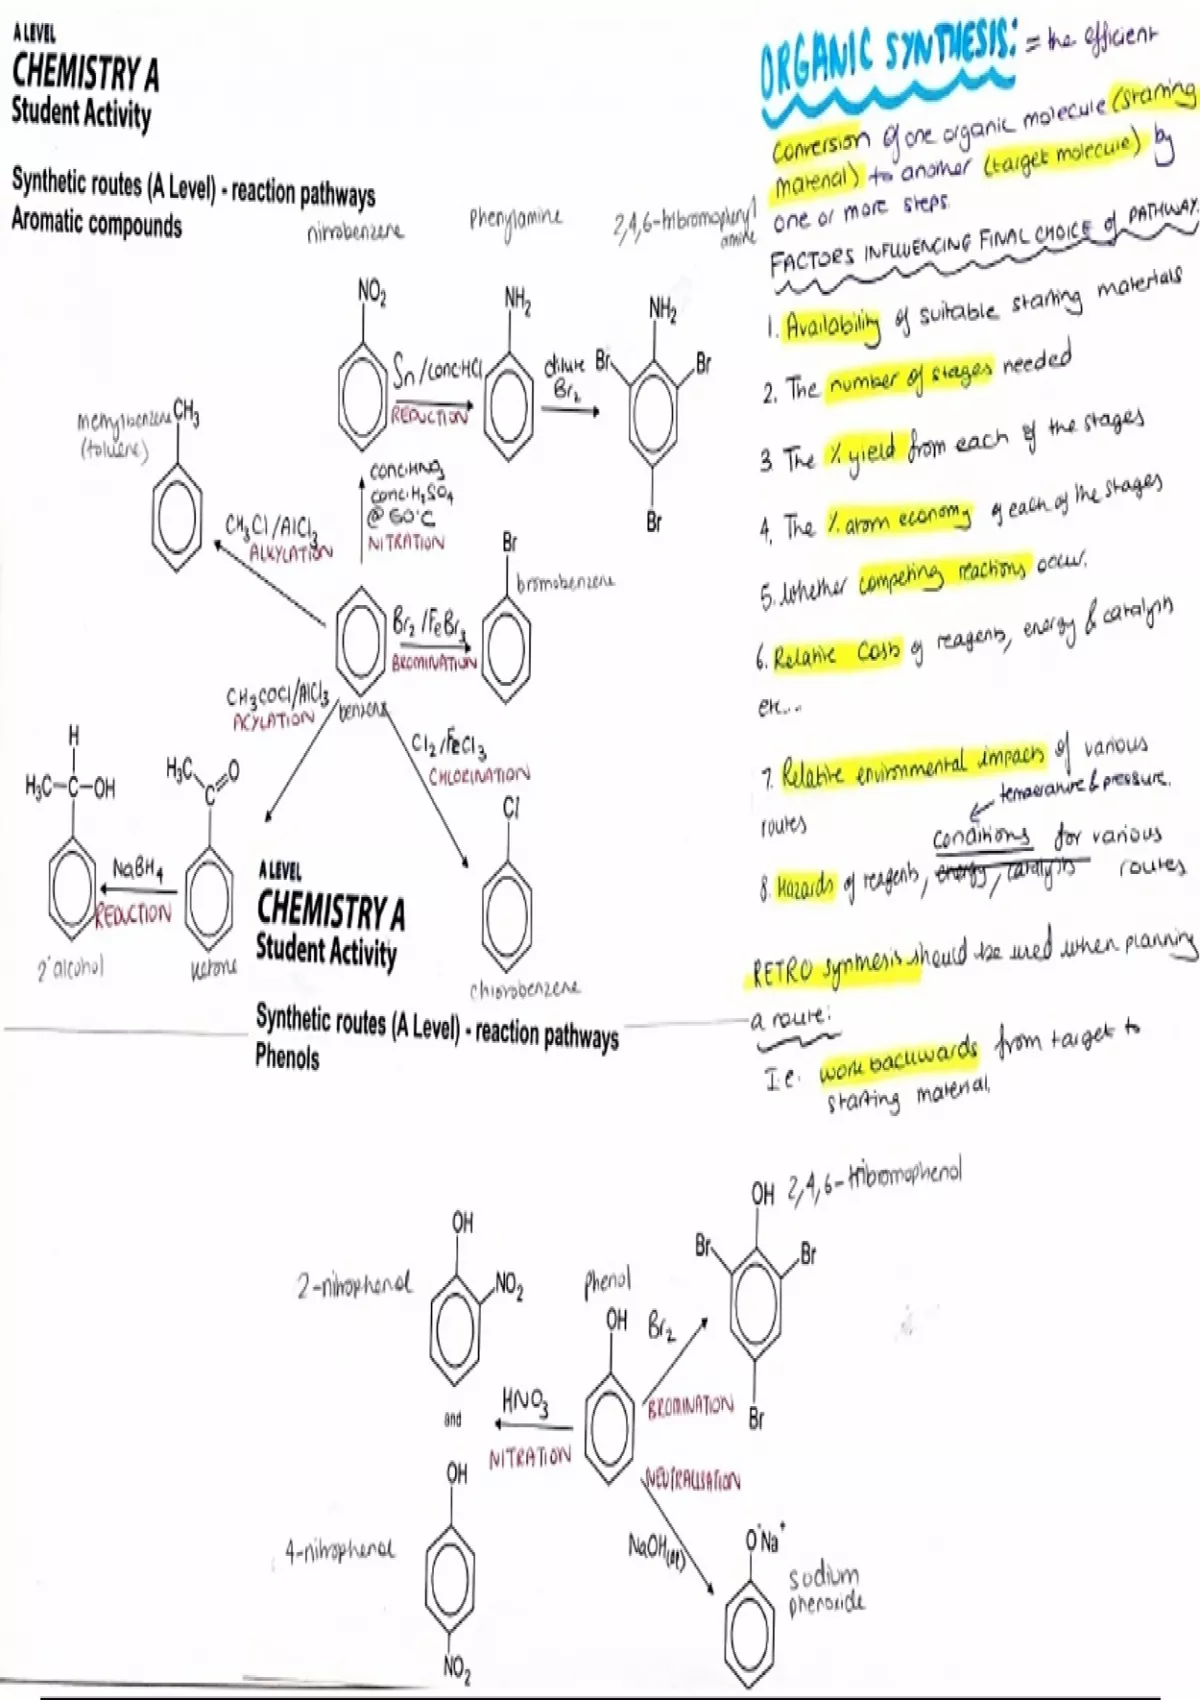 A LEVEL
CHEMISTRY A
Student Activity
Synthetic routes (A Level) - reaction pathways
Aromatic compounds
nitrobenzene
phenylamine
2,4,6-tribromophenyl
amine
NO2
NH2
NH2
Br
Br
Br
Sn/conc.HCl
REDUCTION
dilute
Br2
methylbenzene
(toluene)
CH3
CH3Cl/AlCl3
ALKYLATION
conc.HNO3
conc.H2SO4
@ 60°C
NITRATION
Br
bromobenzene
Br2/FeBr3
BROMINATION
CH3COCl/AlCl3
ACYLATION
benzene
Cl2/FeCl3
CHLORINATION
Cl
chlorobenzene
H
H3C-C-OH
H3C
C
O
NaBH4
REDUCTION
2°alcohol
ketone
A LEVEL
CHEMISTRY A
Student Activity
Synthetic routes (A Level) - reaction pathways
Phenols
2-nitrophenol
OH
NO2
and
4-nitrophenol
OH
NO2
HNO3
NITRATION
phenol
OH
Br2
BROMINATION
OH
2,4,6-tribromophenol
Br
Br
Br
NEUTRALISATION
NaOH(aq)
O-Na+
sodium
phenoxide
ORGANIC SYNTHESIS: = the efficient
conversion of one organic molecule (starting
material) to another (target molecule) by
one or more steps.
FACTORS INFLUENCING FINAL CHOICE of PATHWAY.
1. Availability of suitable starting materials
2. The number of stages needed
3 The % yield from each of the stages
4. The % atom economy of each of the stages
5. Whether competing reactions occur.
6. Relative costs of reagents, energy & catalysts
etc...
7. Relative environmental impacts of various
routes
temperature & pressure.
conditions for various
8. Hazards of reagents, energy, catalysts routes
RETRO synthesis should be used when planning
a route:
I.e. work backwards from target to
starting material.